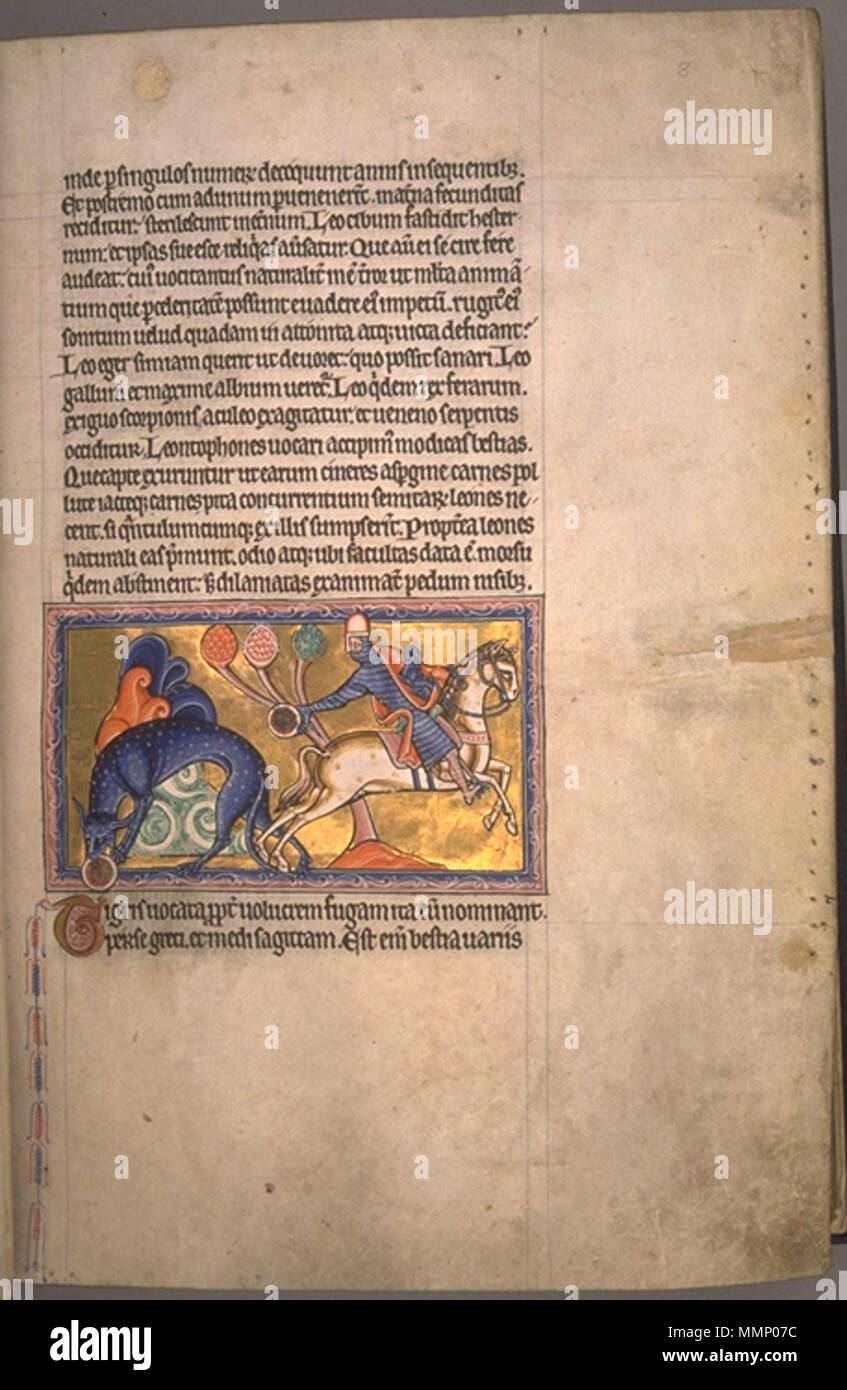 8
inde p singulos numerꝫ decoquunt annis insequentibꝫ.
Et postremo cum ad unum puenerēt. mat̄na fecunditas
reciditur: sterilescunt in et̄num. Leo cibum fastidit hester
num: et ipsas sue esce reliq̄as au̓satur. Que aū ei se cire fere
audeat: cui᾽ uocitantus naturalit̄ inē t̄ror ut ml̄ta animā
tium que p celeritatē possunt euadere ei᾽ impetū. rugit᾽ ei᾽
sonitum uelud quadam ui attonita atqꝫ uicta deficiant:
Leo eger simiam querit ut deuoret: quo possit sanari. Leo
gallum et maxime album ueret᾽. Leo q̇dem rex ferarum.
exiguo scorpionis aculeo exagitatur: et ueneno serpentis
occiditur. Leontophones uocari accipim᾽ modicas bestias.
Que capte exuruntur ut earum cineres aspgine carnes pol
lute iacteqꝫ carnes p ita concurrentium semitarꝫ leones ne
cent. si q̄ntulumcumqꝫ ex illis sumpserit̄. Propt̄ea leones
naturali eas p̄munt. odio atqꝫ ubi facultas data ē. morsu
q̇dem abstinent: sꝫ dilaniatas exanimat̄ pedum nisibꝫ.
Tigris uocata ppt̄ uolucrem fugam ita eū nominant.
perse greci. et medi sagittam. Est em̄ bestia uariis
alamy
alamy
Image ID: MMP07C
www.alamy.com